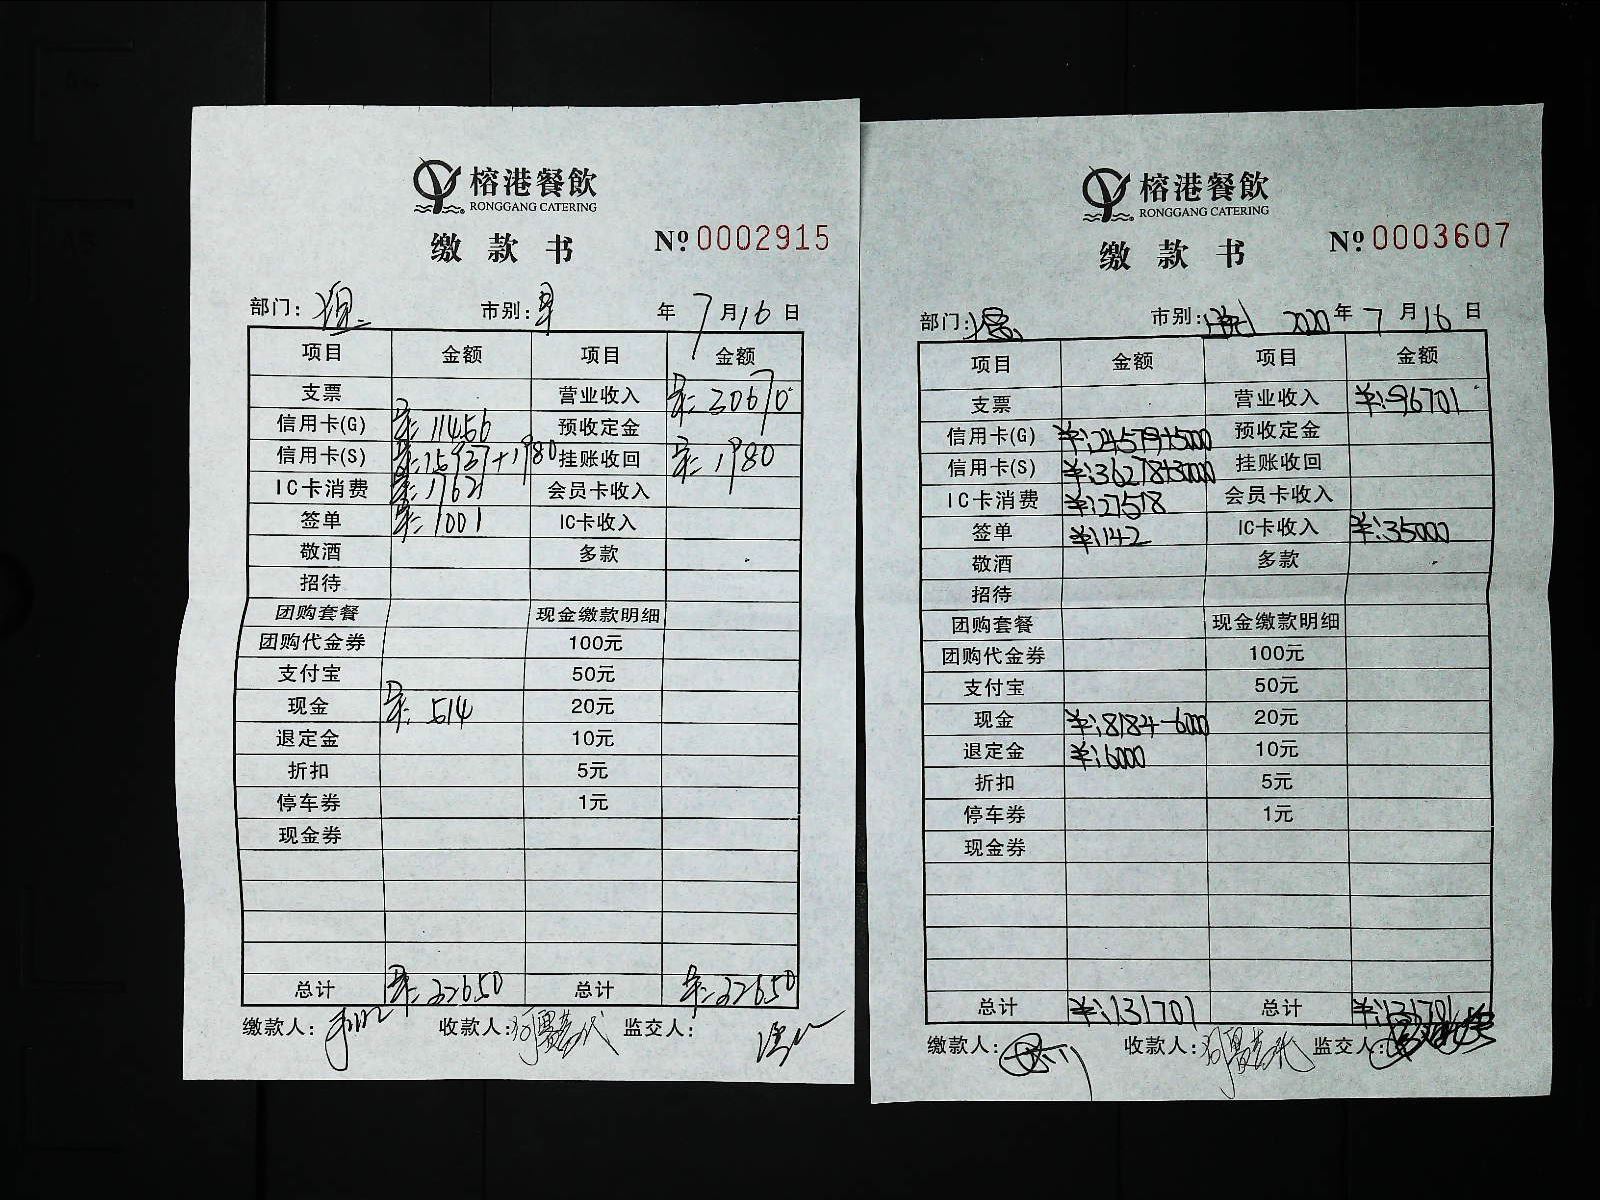 榕港餐飲
RONGGANG CATERING
缴款书 № 0002915
部门： 市别：早 年 7 月 16 日
项目 金额 项目 金额
支票 营业收入 ¥：20670
信用卡(G) ¥：1456 预收定金
信用卡(S) ¥：15937+1980 挂账收回 ¥：1980
IC卡消费 ¥：1762 会员卡收入
签单 ¥：1001 IC卡收入
敬酒 多款
招待
团购套餐 现金缴款明细
团购代金券 100元
支付宝 50元
现金 ¥：514 20元
退定金 10元
折扣 5元
停车券 1元
现金券
总计 ¥：22650 总计 ¥：22650
缴款人： 收款人： 监交人：
榕港餐飲
RONGGANG CATERING
缴款书 № 0003607
部门： 市别： 2020 年 7 月 16 日
项目 金额 项目 金额
支票 营业收入 ¥：96701
信用卡(G) ¥：24579+5000 预收定金
信用卡(S) ¥：36278+30000 挂账收回
IC卡消费 ¥：27518 会员卡收入
签单 ¥：142 IC卡收入 ¥：35000
敬酒 多款
招待
团购套餐 现金缴款明细
团购代金券 100元
支付宝 50元
现金 ¥：8184-6000 20元
退定金 ¥：6000 10元
折扣 5元
停车券 1元
现金券
总计 ¥：131701 总计 ¥：131701
缴款人： 收款人： 监交人：